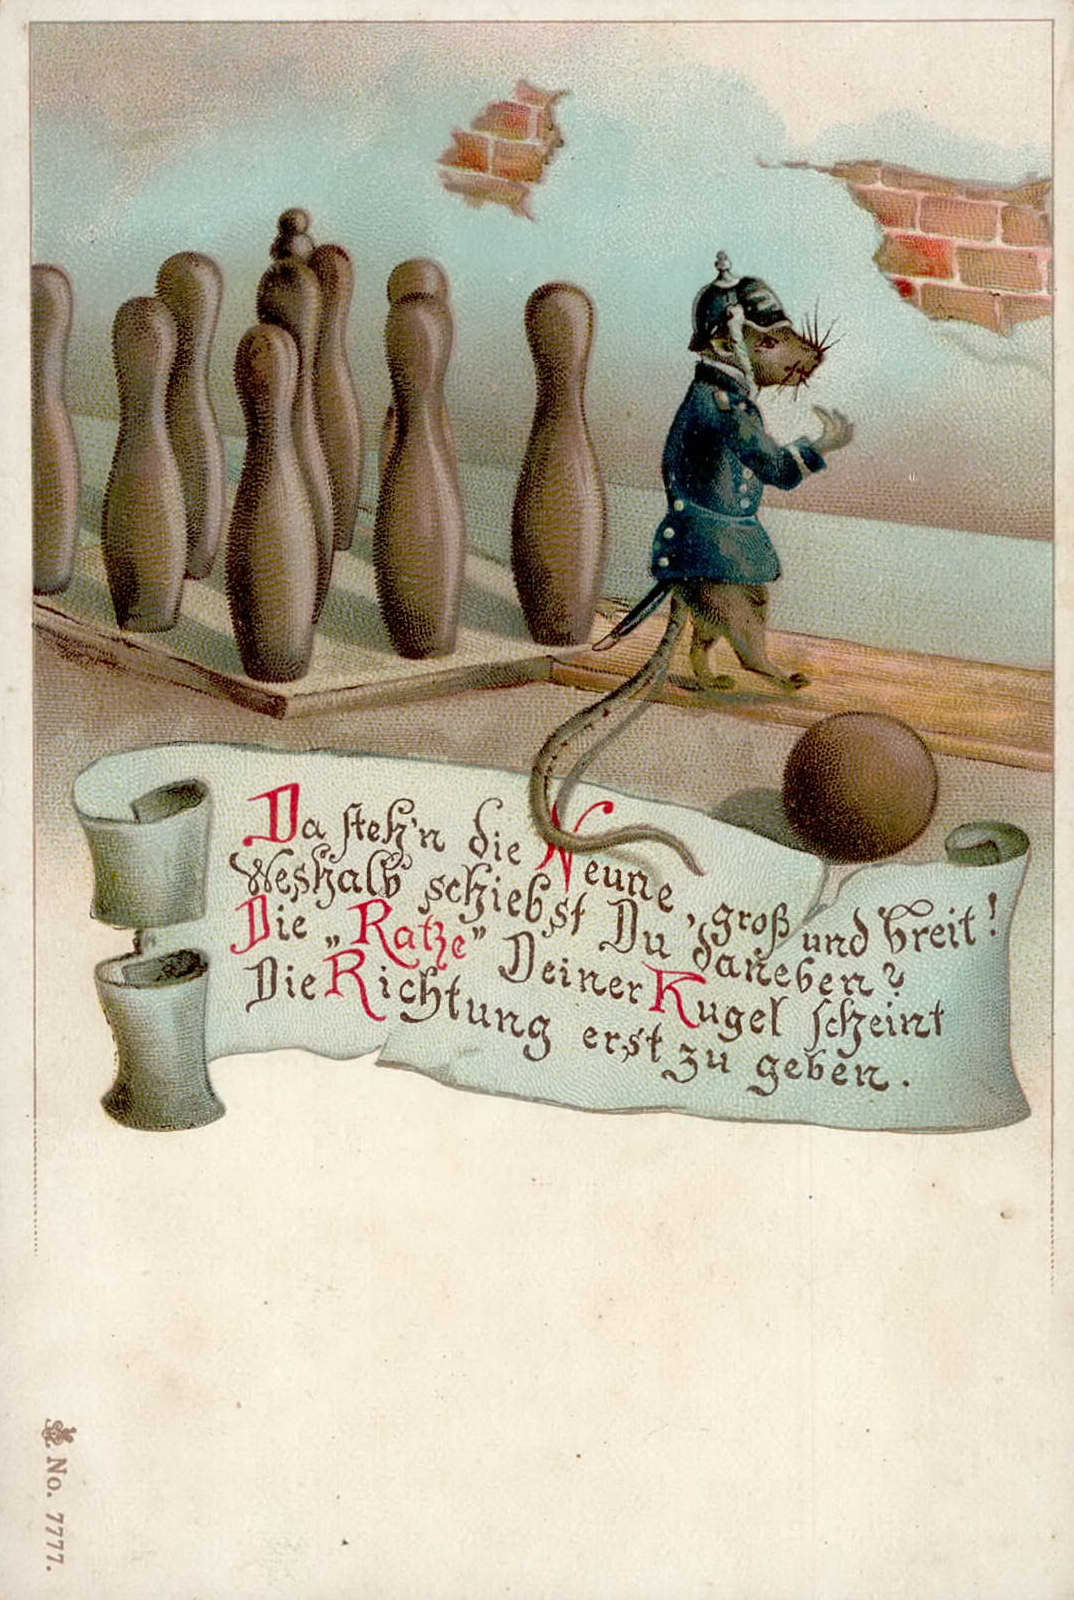 Da steh'n die Neune, groß und breit!
Weshalb schiebst Du daneben?
Die „Ratze" Deiner Kugel scheint
Die Richtung erst zu geben.
No. 7777.